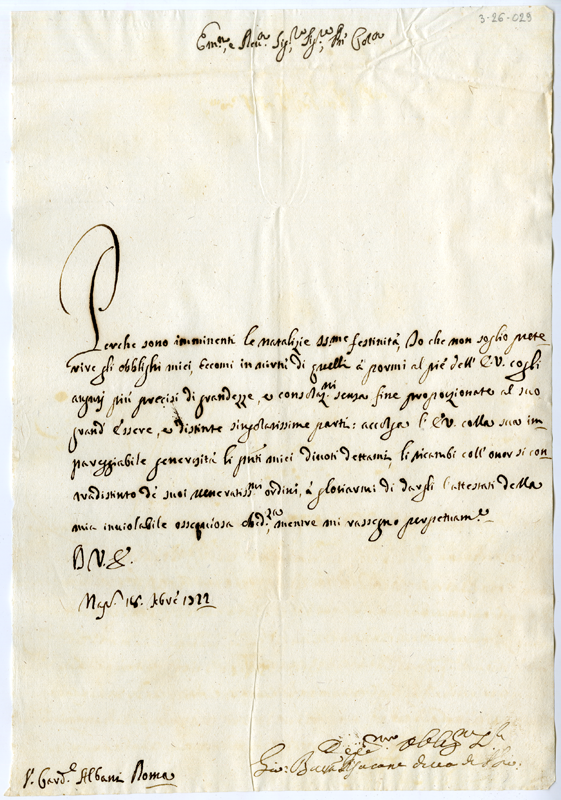 3-26-029
Em.mo e Rev.mo Sig.re Sig.re
Perche sono imminenti le natalizie SS.me festività, Io che non soglio prete
rire gli obblighi miei, eccomi in virtù di quelli à pormi al piè dell' E.V. cogli
augurj più precisi di grandezze, e consolaz.ni senza fine proporzionate al suo
grand' Essere, e distinte singolarissime parti: accolga l' E.V. colla sua im
pareggiabile generosità li miei divoti dettami, li ricambi coll' onor si con
tradistinto de' suoi veneratiss.mi ordini, à gloriarmi di dargli l'attestati della
mia inviolabile ossequiosa obed.za, mentre mi rassegno perpetuam.e
D.V.E.
Nap. 18. Xbre 1722
Gio: Duca di
S.r Card.e Albani Roma